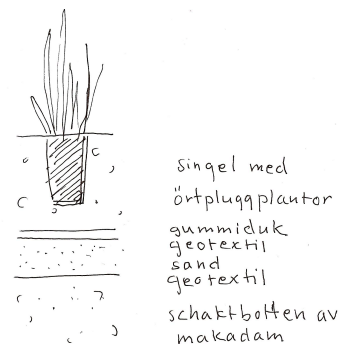 singel med
örtpluggplantor
gummiduk
geotextil
sand
geotextil
schaktbotten av
makadam